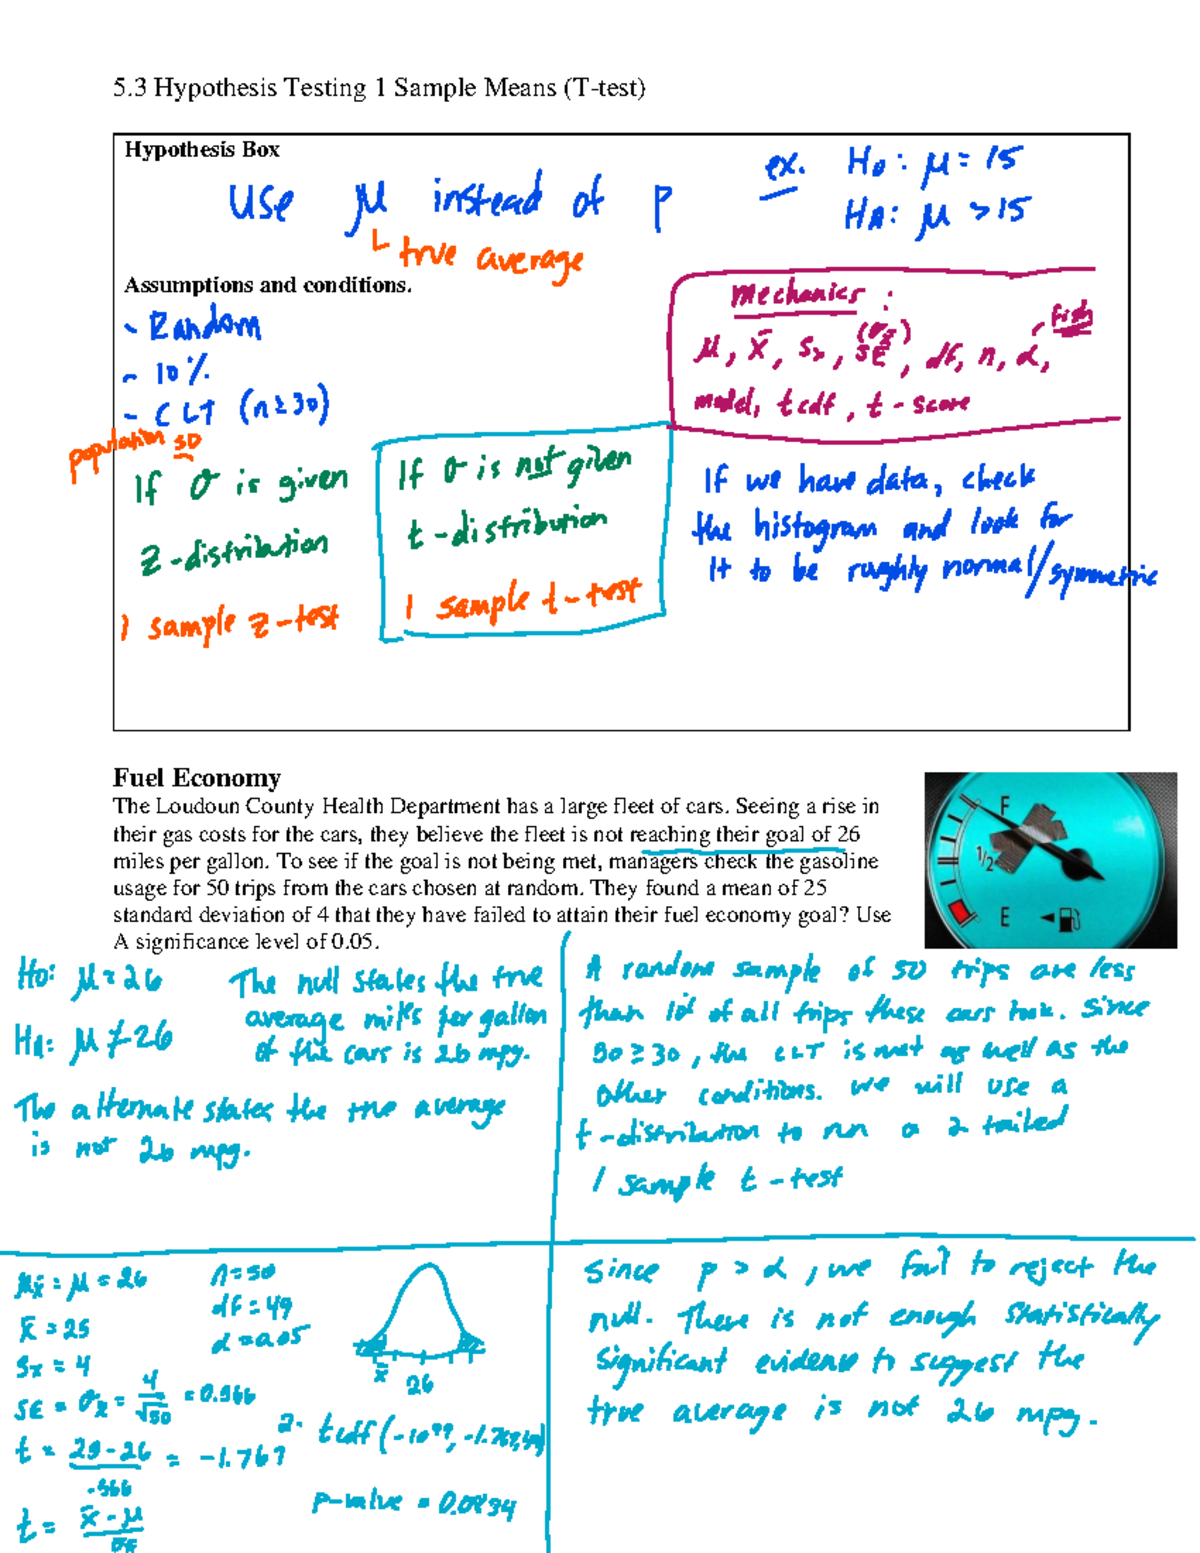 5.3 Hypothesis Testing 1 Sample Means (T-test)
Hypothesis Box
use μ instead of p
↳ true average
ex. H₀: μ = 15
HA: μ > 15
Assumptions and conditions.
- Random
- 10%
- CLT (n ≥ 30)
mechanics:
μ, x̄, Sx, SE, df, n, α,
model, tcdf, t-score
population SD
If σ is given
z-distribution
1 sample z-test
If σ is not given
t-distribution
1 sample t-test
If we have data, check
the histogram and look for
it to be roughly normal/symmetric
Fuel Economy
The Loudoun County Health Department has a large fleet of cars. Seeing a rise in
their gas costs for the cars, they believe the fleet is not reaching their goal of 26
miles per gallon. To see if the goal is not being met, managers check the gasoline
usage for 50 trips from the cars chosen at random. They found a mean of 25
standard deviation of 4 that they have failed to attain their fuel economy goal? Use
A significance level of 0.05.
F
1/2
E
H₀: μ = 26
HA: μ ≠ 26
The null states the true
average miles per gallon
of the cars is 26 mpg.
The alternate states the true average
is not 26 mpg.
A random sample of 50 trips are less
than 10% of all trips these cars took. Since
50 ≥ 30, the CLT is met as well as the
other conditions. We will use a
t-distribution to run a 2 tailed
1 sample t-test
μx̄ = μ = 26
x̄ = 25
Sx = 4
SE = σx̄ = 4/√50 = 0.566
t = 25-26/.566 = -1.767
t = x̄-μ/SE
n = 50
df = 49
α = 0.05
x̄ 26
2 · tcdf(-10⁹⁹, -1.767, 49)
p-value = 0.0834
Since p > α, we fail to reject the
null. There is not enough statistically
significant evidence to suggest the
true average is not 26 mpg.